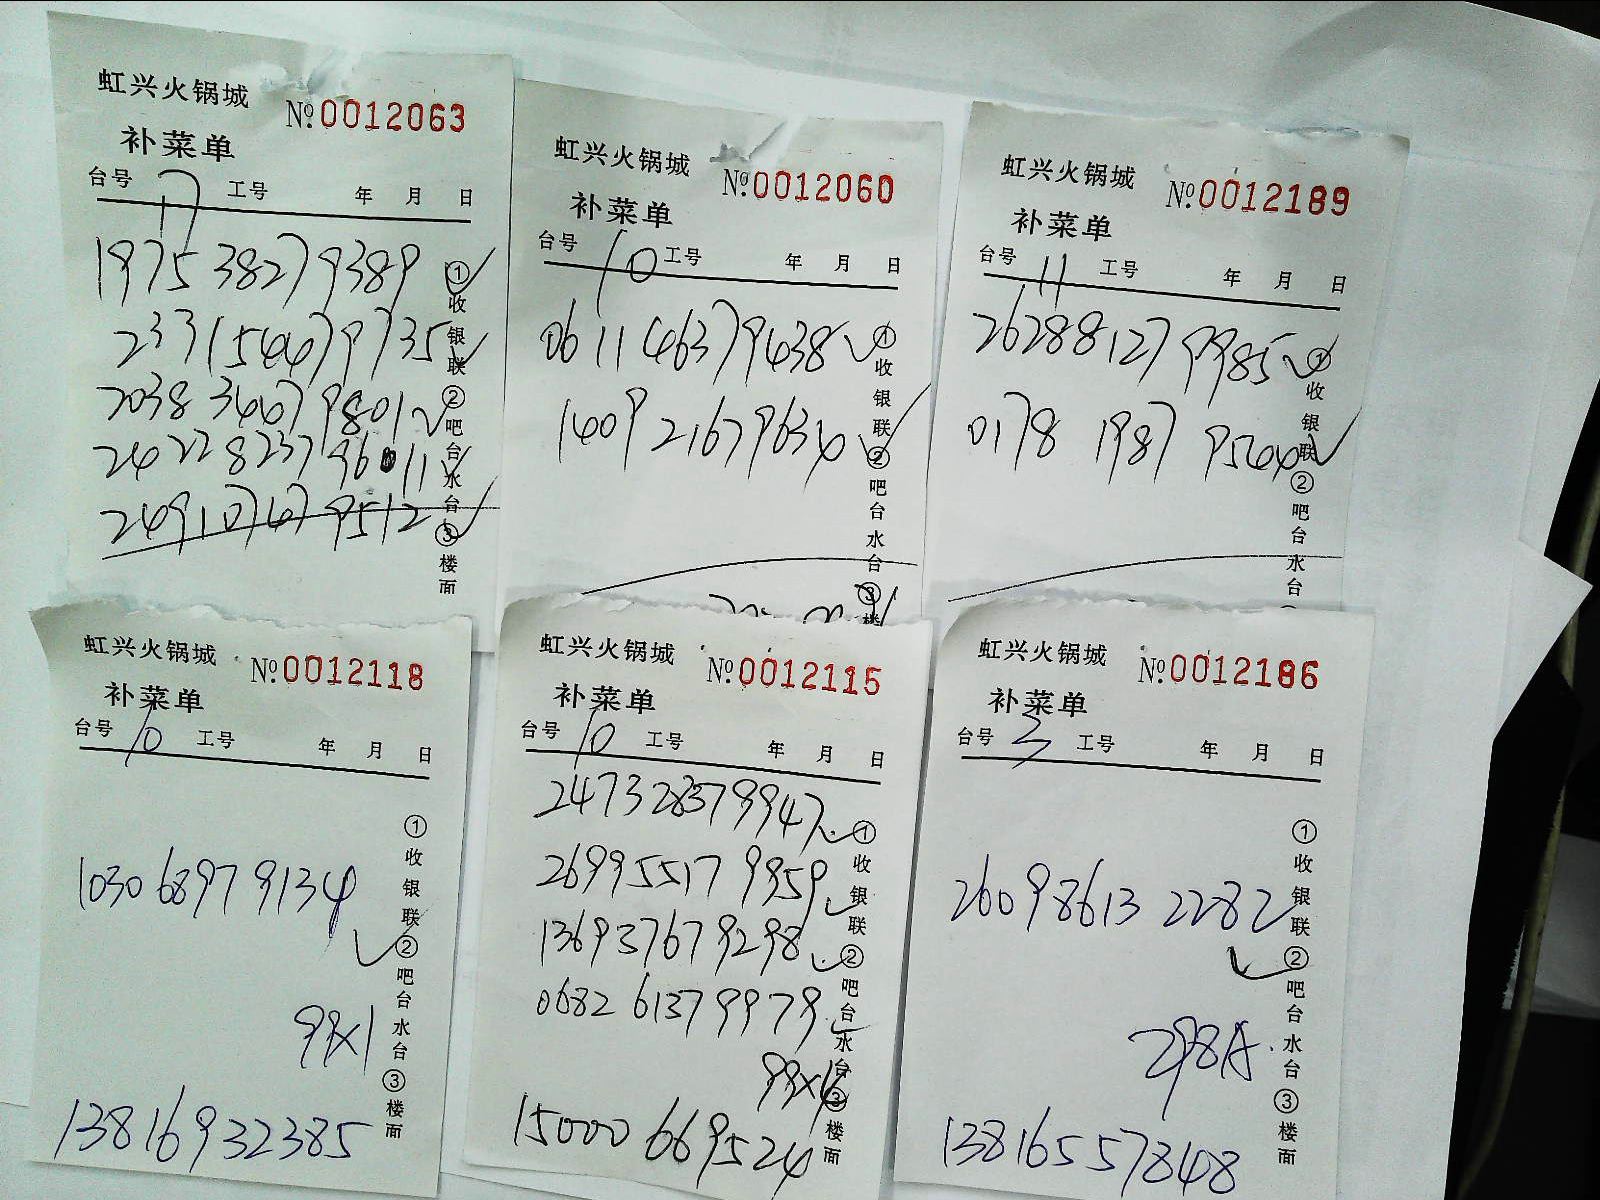 虹兴火锅城 №0012063
补菜单
台号 17 工号 年 月 日
1975 3827 9389
2331 5447 9735
2038 3467 9801
2422 8237 96011
2491 0747 9512
①收银联②吧台水台③楼面
虹兴火锅城 №0012060
补菜单
台号 10 工号 年 月 日
0611 4637 9438
1409 2167 9634
①收银联②吧台水台③楼
虹兴火锅城 №0012189
补菜单
台号 11 工号 年 月 日
2628 8127 9985
0178 1987 9544
①收银联②吧台水台
虹兴火锅城 №0012118
补菜单
台号 10 工号 年 月 日
1030 6897 9134
99×1
13816932385
①收银联②吧台水台③楼面
虹兴火锅城 №0012115
补菜单
台号 10 工号 年 月 日
2473 2837 9947
2699 5517 9959
1369 3767 9298
0682 6137 9979
99×4
15000 669524
①收银联②吧台水台③楼面
虹兴火锅城 №0012186
补菜单
台号 3 工号 年 月 日
2609 8613 2282
298A.
13816557848
①收银联②吧台水台③楼面